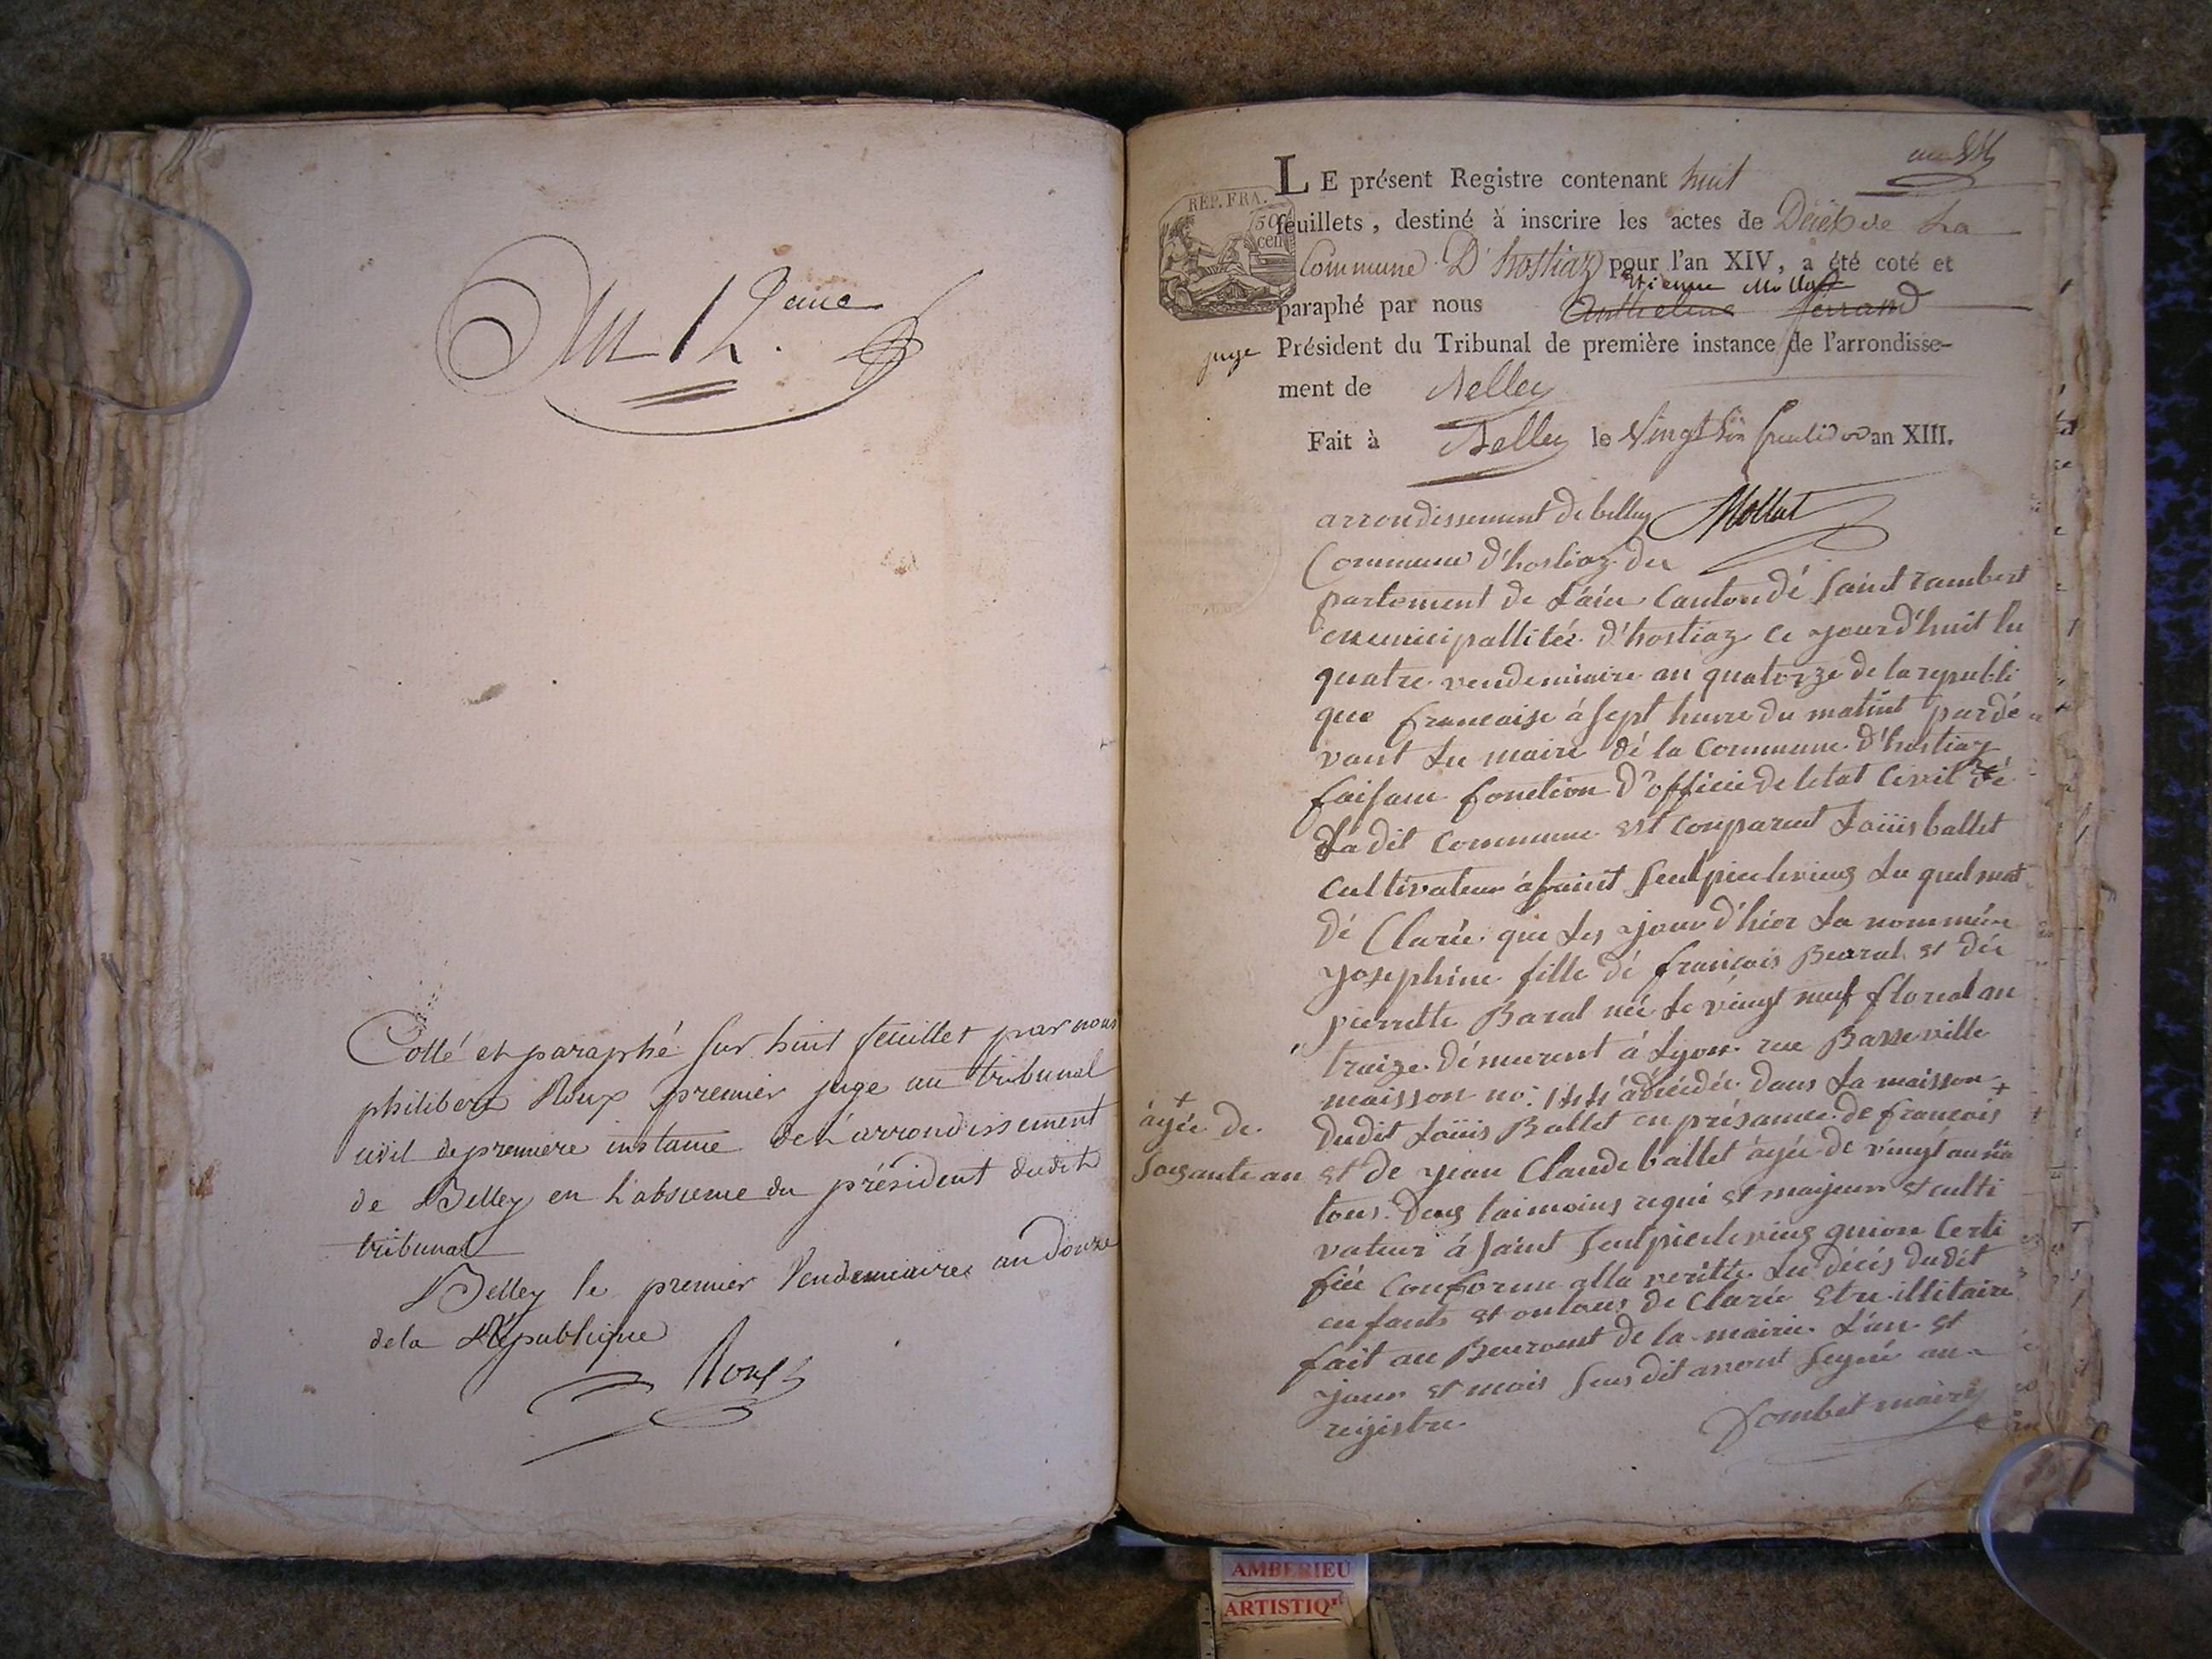 An 12.eme
Cotté et paraphé sur huit feuillet par nous
philibert Roux premier juge au tribunal
civil de premiere instance de l'arrondissement
de Belley en l'absence du président dudit
tribunal
Belley le premier Vendemiaire an douze
de la République
Roux
LE présent Registre contenant huit
feuillets, destiné à inscrire les actes de Décès de La
Commune D'hostiaz pour l'an XIV, a été coté et
Etienne Mollet
paraphé par nous Anthelme ferrand
juge Président du Tribunal de première instance de l'arrondisse-
ment de Belley
Fait à Belley le Vingt an XIII.
REP. FRA.
50
cen
arrondissement de belley Mollet
Commune d'hostiaz de
partement de L'ain Canton dé saint rambert
municipallitée d'hostiaz ce yourd'huit lu
quatre vendemiaire an quatorze de la republi
que francaise á sept hure du matint pardé
vant Lu maire dé la Commune d'hostiaz
faisant fonction d'officié de letat Civil dé
Ladit Commune est comparent Loüis ballet
Cultivateur á saint Lu quel mat
dé Clarée que Les your d'hier La nommée
yosephine fille dé francois Barral et dée
pierrette Baral née Le vingt neuf floreal an
traize démeurent á Lyon rue Basseville
maisson no: 144 ádécédée dans La maisson +
dudit Loüis Ballet en présance de francois
+
áyée de
soisante an
et de yean Claude ballet áyée de vingt an
tous deus taimoins requi et mayeur et culti
vateur á saint quion Certi
fiée Conforme alla veritte Lu décés dudit
enfant et onlous de Clarée
fait au Beuraut de la mairie L'an et
your et mois susdit avont seyné au
reyistre
Jombet maire
AMBERIEU
ARTISTIQ